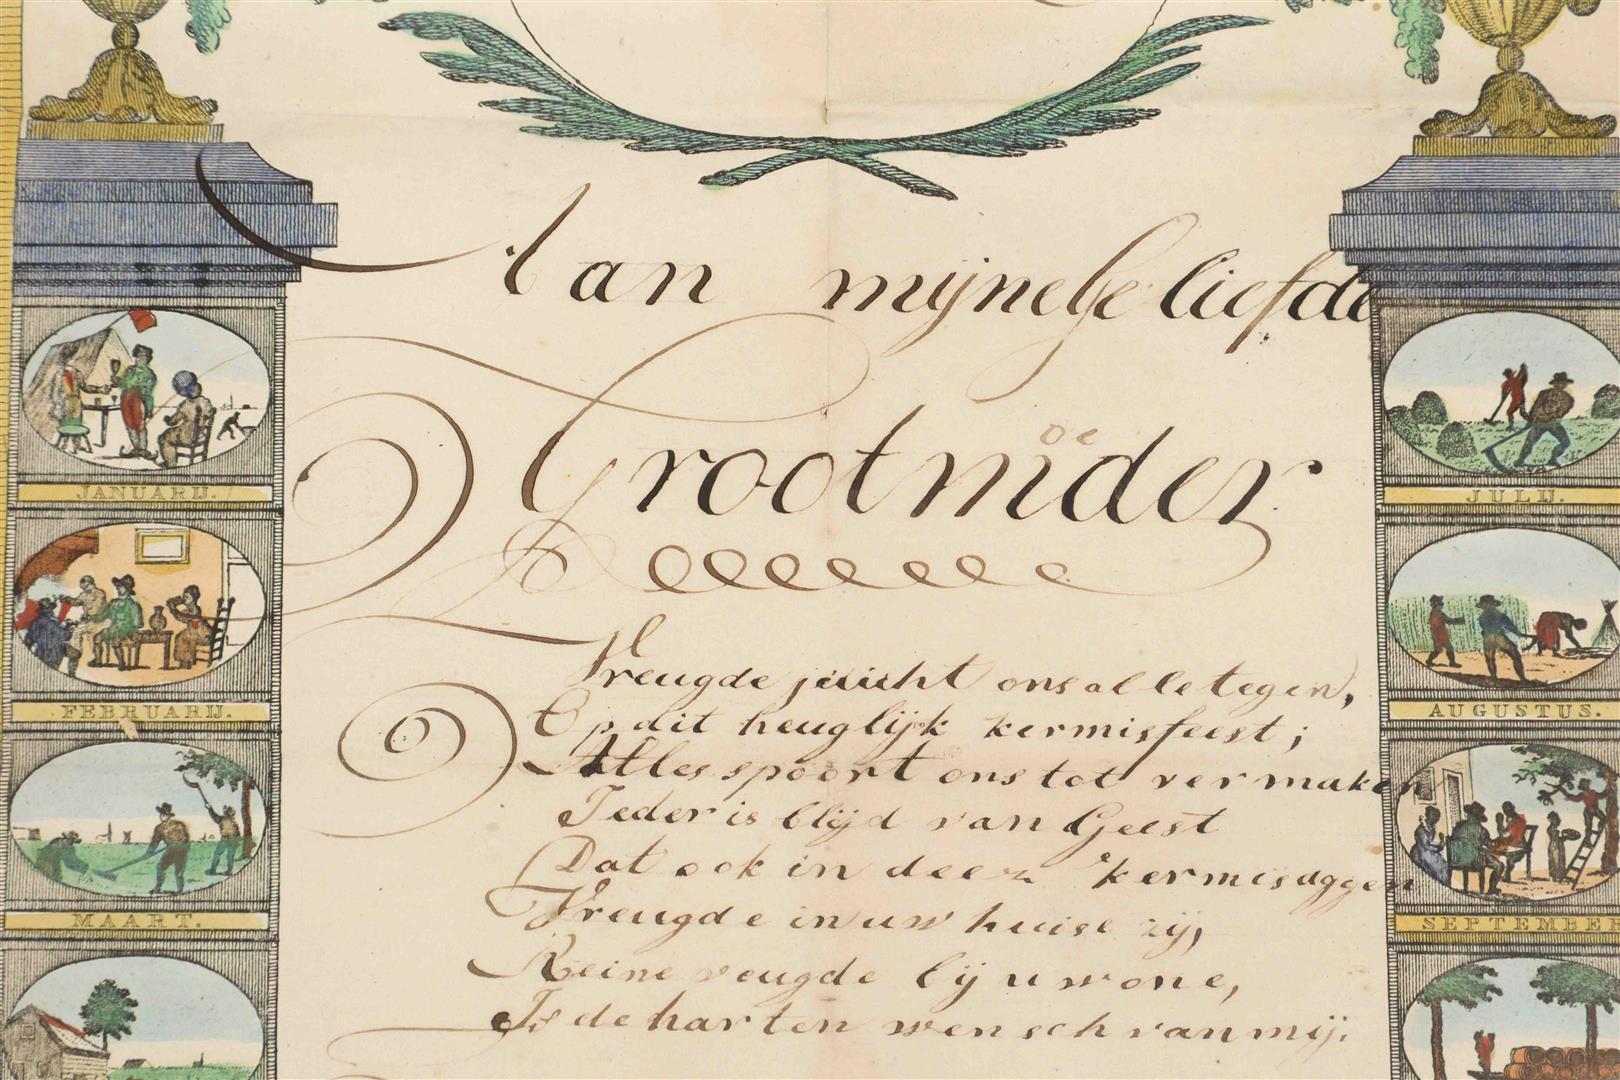 Aan mijne Geliefde
Grootmoeder
Vreugde juicht ons alle tegen,
Op dit heuglijk kermisfeest;
Alles spoort ons tot vermaken
Ieder is blijd van Geest
Dat ook in deez kermisdggen
Vreugde in uw huise zij,
Reine veugde bij u wone,
Is de harten wensch van mij.
JANUARIJ.
FEBRUARIJ.
MAART.
JULIJ.
AUGUSTUS.
SEPTEMBER